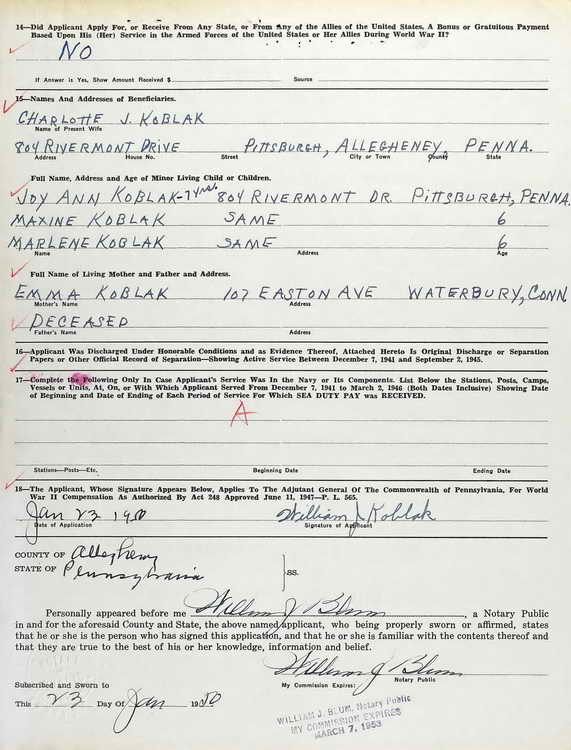 14—Did Applicant Apply For, or Receive From Any State, or From Any of the Allies of the United States, A Bonus or Gratuitous Payment
Based Upon His (Her) Service in the Armed Forces of the United States or Her Allies During World War II?
NO
If Answer is Yes, Show Amount Received $ Source
15—Names And Addresses of Beneficiaries.
CHARLOTTE J. KOBLAK
Name of Present Wife
804 RIVERMONT DRIVE PITTSBURGH, ALLEGHENEY, PENNA.
Address House No. Street City or Town County State
Full Name, Address and Age of Minor Living Child or Children.
JOY ANN KOBLAK-7yrs. 804 RIVERMONT DR. PITTSBURGH, PENNA.
MAXINE KOBLAK SAME 6
MARLENE KOBLAK SAME 6
Name Address Age
Full Name of Living Mother and Father and Address.
EMMA KOBLAK 107 EASTON AVE WATERBURY, CONN.
Mother's Name Address
DECEASED
Father's Name Address
16—Applicant Was Discharged Under Honorable Conditions and as Evidence Thereof, Attached Hereto Is Original Discharge or Separation
Papers or Other Official Record of Separation—Showing Active Service Between December 7, 1941 and September 2, 1945.
17—Complete the Following Only In Case Applicant's Service Was In the Navy or Its Components. List Below the Stations, Posts, Camps,
Vessels or Units, At, On, or With Which Applicant Served From December 7, 1941 to March 2, 1946 (Both Dates Inclusive) Showing Date
of Beginning and Date of Ending of Each Period of Service For Which SEA DUTY PAY was RECEIVED.
A
Stations—Posts—Etc. Beginning Date Ending Date
18—The Applicant, Whose Signature Appears Below, Applies To The Adjutant General Of The Commonwealth of Pennsylvania, For World
War II Compensation As Authorized By Act 248 Approved June 11, 1947—P. L. 565.
Jan 23 1950 William J. Koblak
Date of Application Signature of Applicant
COUNTY OF Allegheny
STATE OF Pennsylvania ss.
Personally appeared before me William J Blum, a Notary Public
in and for the aforesaid County and State, the above named applicant, who being properly sworn or affirmed, states
that he or she is the person who has signed this application, and that he or she is familiar with the contents thereof and
that they are true to the best of his or her knowledge, information and belief.
William J Blum
Subscribed and Sworn to My Commission Expires: Notary Public
This 23 Day of Jan 1950
WILLIAM J. BLUM, Notary Public
MY COMMISSION EXPIRES
MARCH 7, 1953